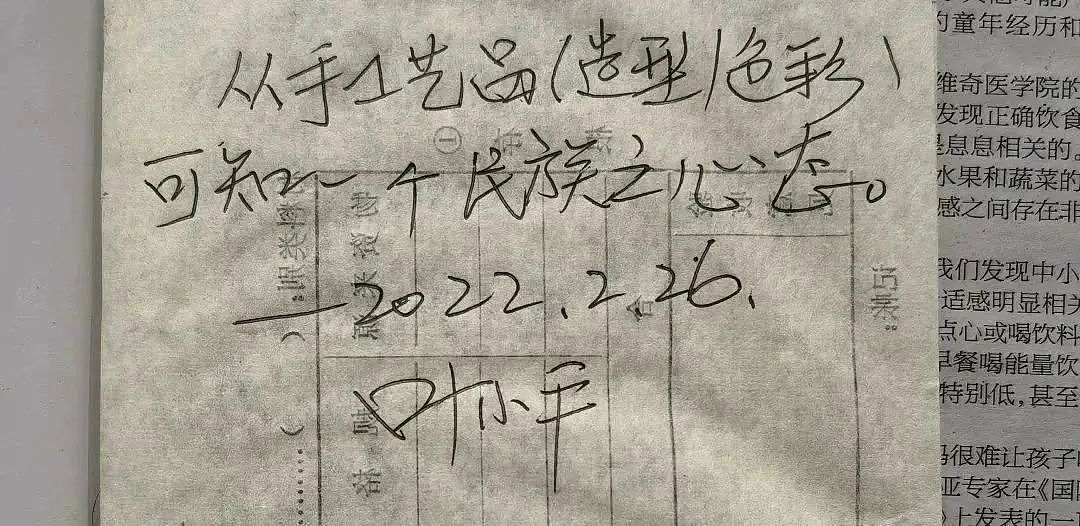 从手工艺品(造型/色彩)
可知一个民族之心态。
—2022.2.26.
叶小平
的童年经历和
维奇医学院的
发现正确饮食
是息息相关的。
水果和蔬菜的
感之间存在非
我们发现中小
适感明显相关
点心或喝饮料
早餐喝能量饮
特别低,甚至
妈很难让孩子
亚专家在《国
》上发表的一